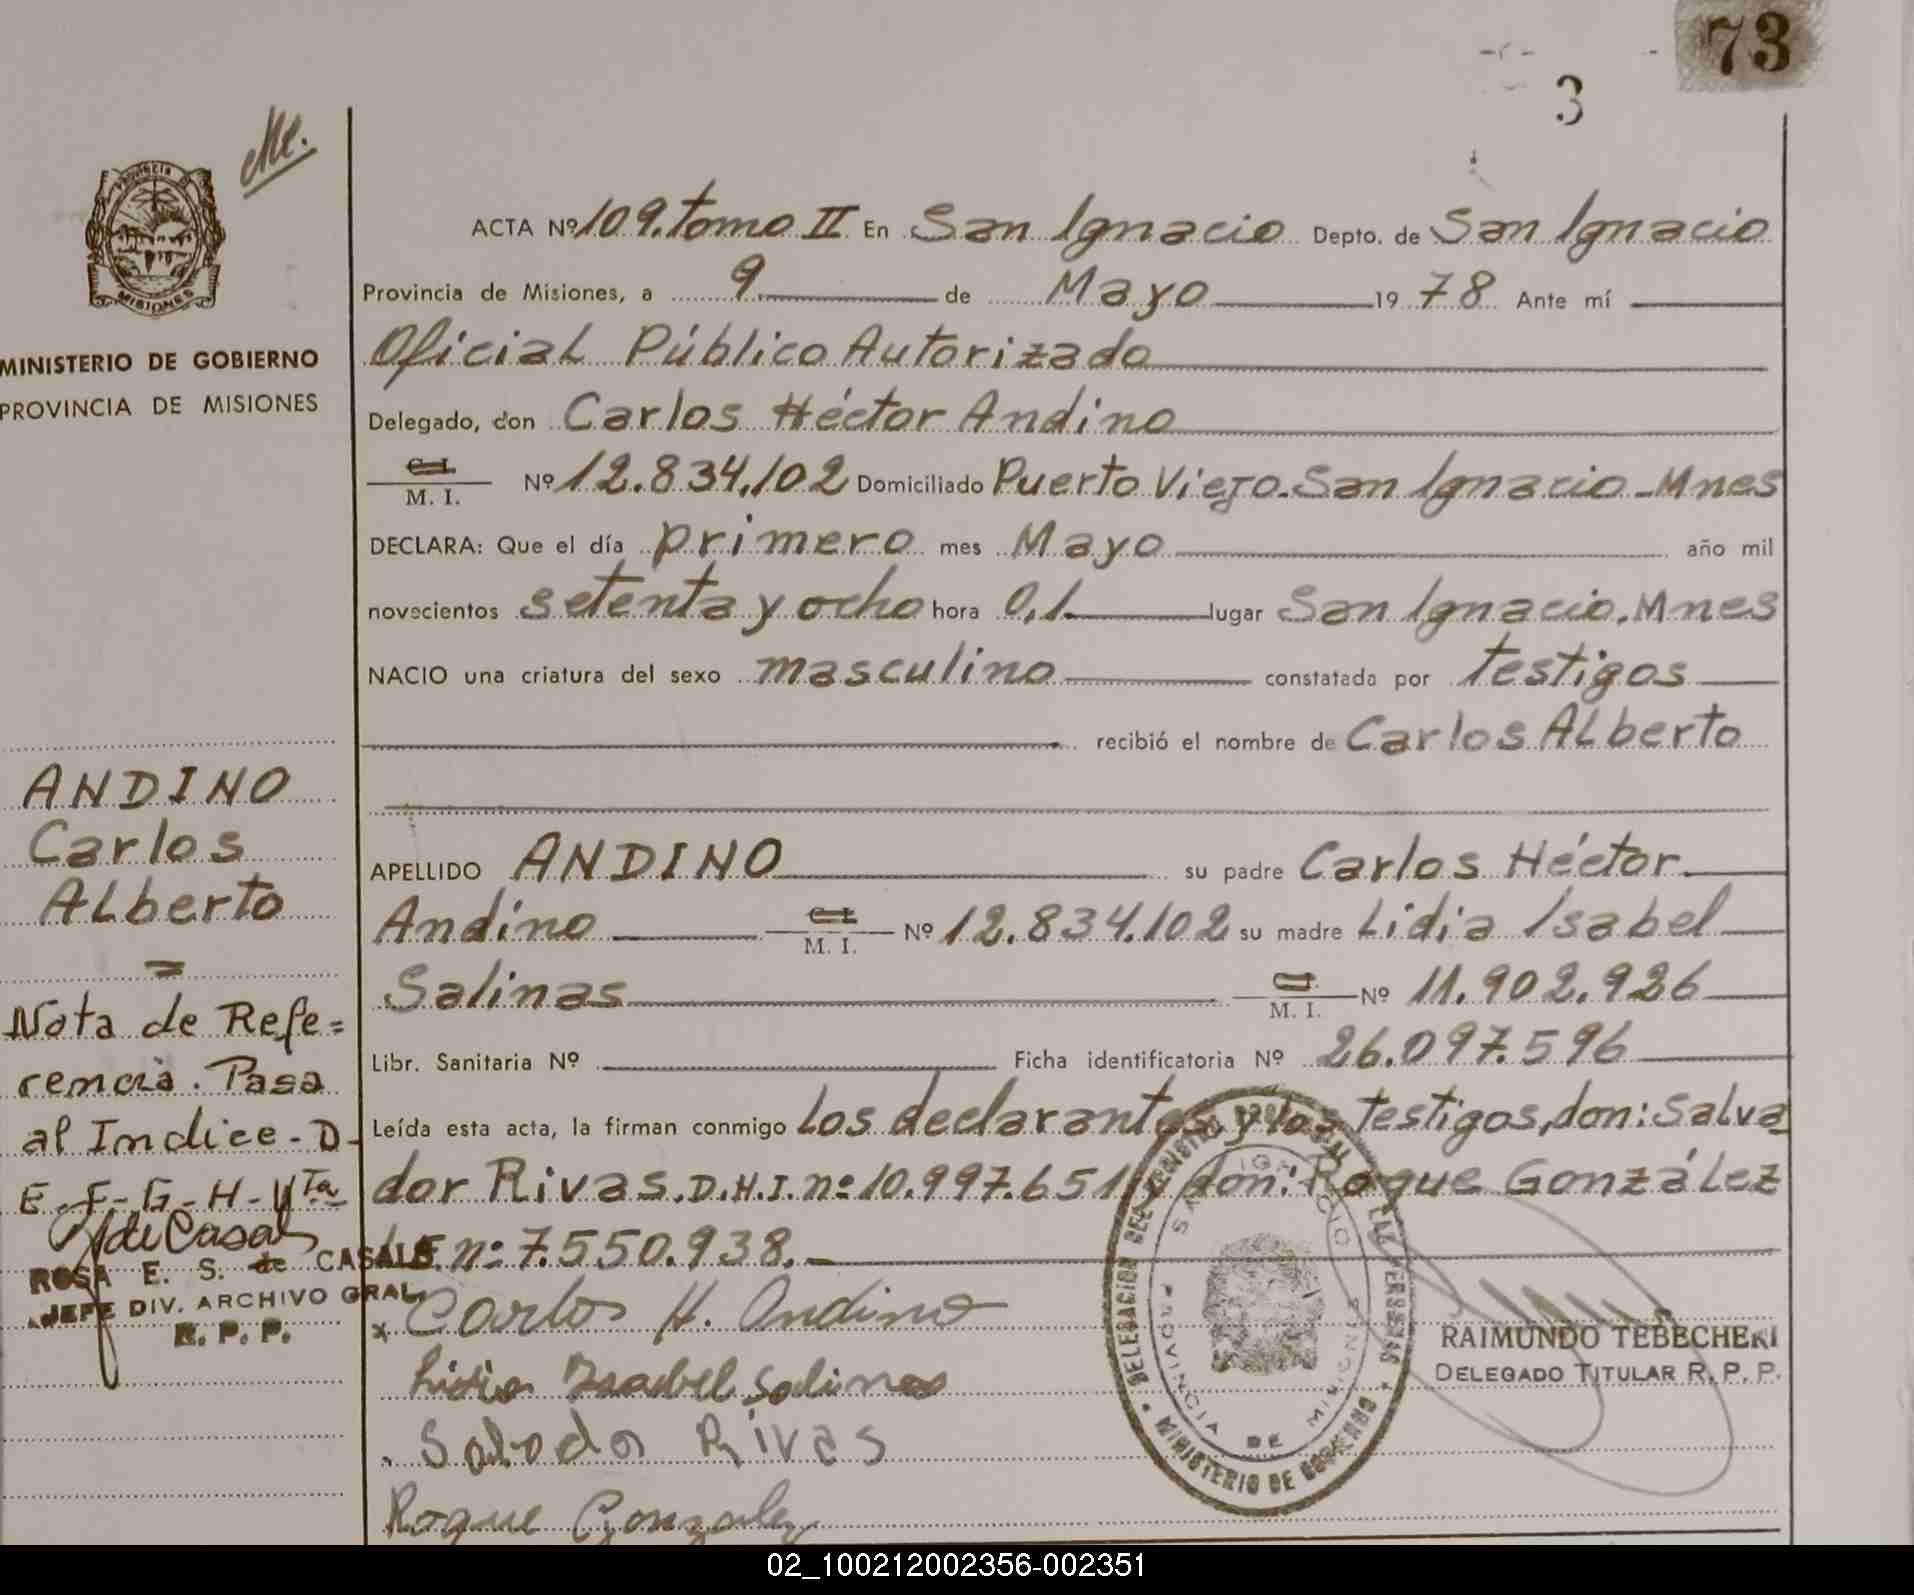 73
3
PROVINCIA DE
MISIONES
MINISTERIO DE GOBIERNO
PROVINCIA DE MISIONES
ACTA Nº 109. tomo II En San Ignacio Depto. de San Ignacio
Provincia de Misiones, a 9 de Mayo 1978 Ante mí
Oficial Público Autorizado
Delegado, don Carlos Héctor Andino
C. I.
M. I. Nº 12.834.102 Domiciliado Puerto Viejo. San Ignacio - Mnes
DECLARA: Que el día primero mes Mayo año mil
novecientos setenta y ocho hora 0,1 lugar San Ignacio. Mnes
NACIO una criatura del sexo masculino constatada por testigos
recibió el nombre de Carlos ALberto
APELLIDO ANDINO su padre Carlos Héctor
Andino C. I. M. I. Nº 12.834.102 su madre Lidia Isabel
Salinas C. I. M. I. Nº 11.902.926
Libr. Sanitaria Nº Ficha identificatoria Nº 26.097.596
Leída esta acta, la firman conmigo Los declarantes y los testigos, don: Salva
dor Rivas. D.N.I. nº 10.997.651 y don: Roque GonzáLez
L.E. nº 7.550.938.
x Carlos H. Andino
Lidia Isabel Salinas
Salvador Rivas
Roque Gonzalez
ANDINO
Carlos
ALberto
=
Nota de Refe=
rencia. Pasa
al Indice - D-
E - F - G - H - Vta
ROSA E. S. de CASALS
JEFE DIV. ARCHIVO GRAL.
R. P. P.
DELEGACION DEL REGISTRO PROVINCIAL DE LAS PERSONAS
MINISTERIO DE GOBIERNO
SAN IGNACIO
PROVINCIA DE MISIONES
RAIMUNDO TEBECHERI
DELEGADO TITULAR R. P. P.
02_100212002356-002351